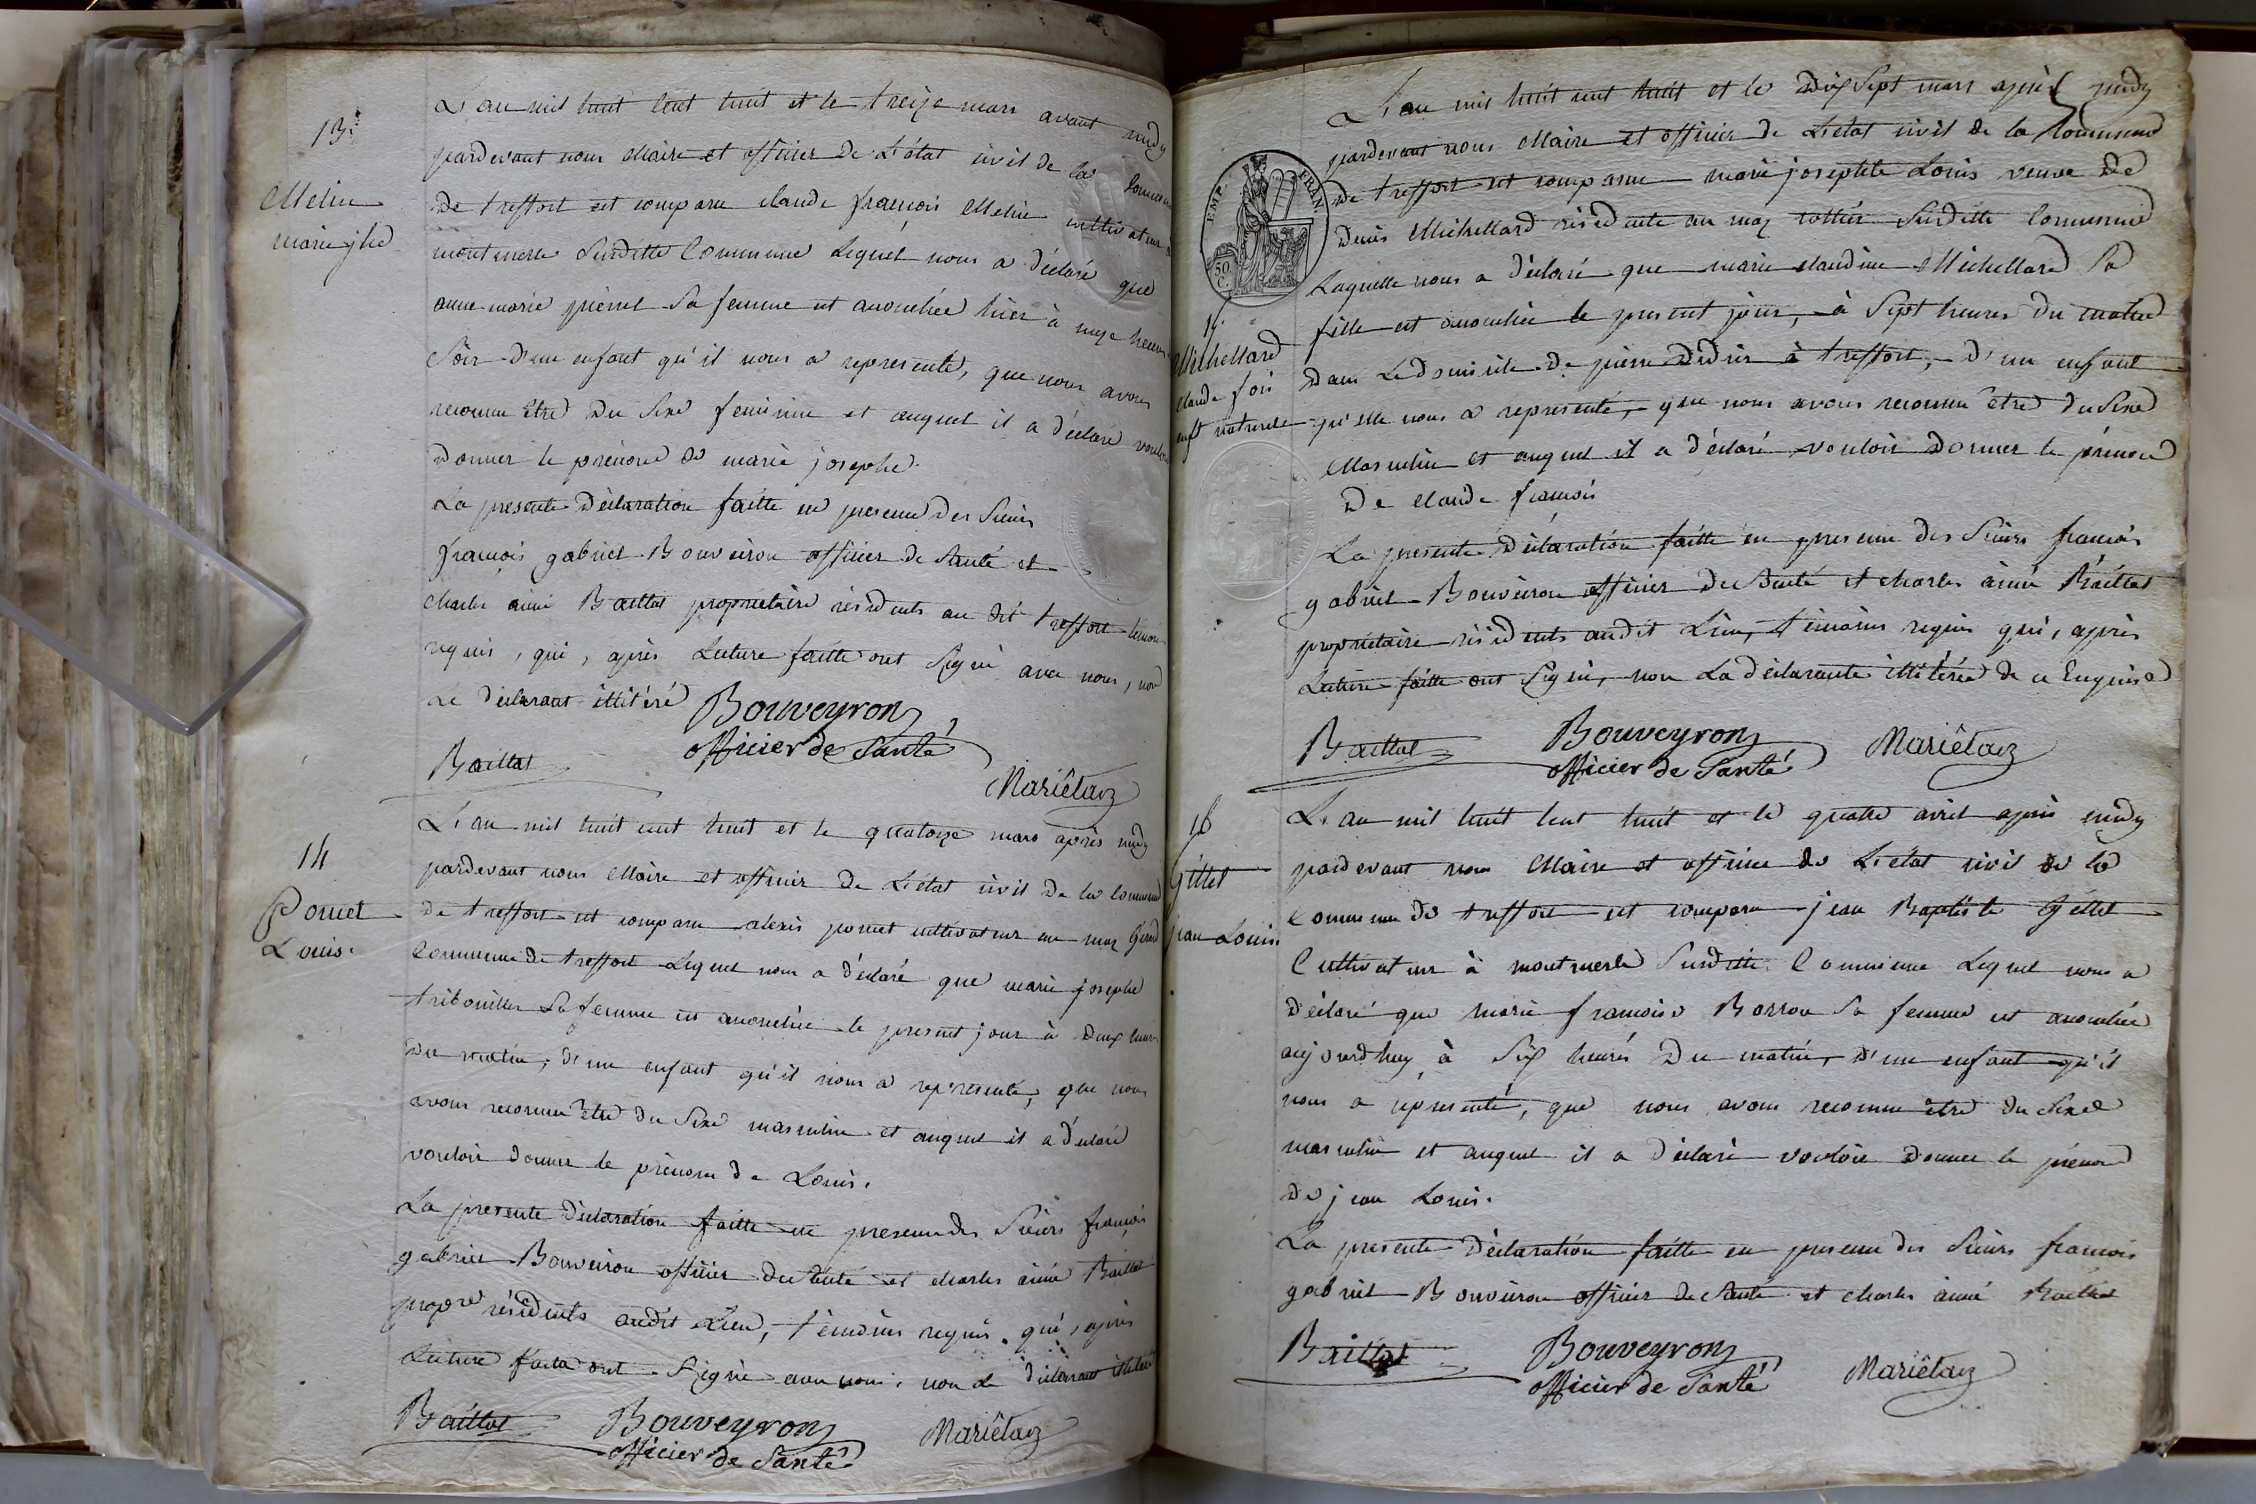 13.
Melin
marie jhe
L'an mil huit cent huit et le treize mars avant midy
pardevant nous Maire et officier de L'état civil de la Commune
de treffort est comparu claude françois Melin cultivateur a
montmerle Susditte Commune Lequel nous a déclaré que
anne marie pierret Sa femme est accouchée hier à onze heures
Soir d'un enfant qu'il nous a representé, que nous avons
reconnu être du Sexe feminin et auquel il a déclaré vouloir
donner le prénom de marie josephe.
La presente déclaration faitte en presence des Sieurs
françois gabriel Bouveiron officier de Santé et
charles aimé Baillat propriétaire résidents au dit treffort témoins
requis, qui, après Lecture faitte ont Signé avec nous, non
Le déclarant illitéré
Bouveyron
officier de Santé
Baillat
Mariêtaz
14
Pomet
Louis.
L'an mil huit cent huit et le quatorze mars après midy
pardevant nous Maire et officier de L'état civil de la Commune
de treffort est comparu alexis pomet cultivateur au maz
Commune de treffort Lequel nous a déclaré que marie josephe
tribouillet Sa femme est accouchée le present jour à deux heures
du matin, d'un enfant qu'il nous a representé, que nous
avons reconnu être du Sexe masculin et auquel il a déclaré
vouloir donner le prénom de Louis.
La presente déclaration faitte en presence des Sieurs françois
gabriel Bouveiron officier de Santé et charles aimé Baillat
propre résidents audit Lieu, témoins requis. qui, après
Lecture faitte ont Signé avec nous, non Le déclarant illitéré
Baillat
Bouveyron
officier de Santé
Mariêtaz
EMP. FRAN.
50 C.
15.
Michellard
claude fois
enft naturel
L'an mil huit cent huit et le dix Sept mars après midy
pardevant nous Maire et officier de L'état civil de la Commune
de treffort est comparue marie josephte Louis veuve de
denis Michellard résidente au maz Susditte Commune
Laquelle nous a déclaré que marie claudine Michellard Sa
fille est accouchée le present jour, à Sept heures du matin
dans Le domicile de pierre didier à treffort, d'un enfant
qu'elle nous a representé, que nous avons reconnu être du Sexe
Masculin et auquel il a déclaré vouloir donner le prénom
de claude françois
La presente déclaration faitte en presence des Sieurs françois
gabriel Bouveiron officier de Santé et charles aimé Baillat
propriétaire résidents audit Lieu, témoins requis qui, après
Lecture faitte ont Signé, non La déclarante illitérée de ce Enquise
Baillat
Bouveyron
officier de Santé
Mariêtaz
16
Gillet
jean Louis.
L'an mil huit Cent huit et le quatre avril après midy
pardevant nous Maire et officier de L'état civil de la
Commune de treffort est comparu jean Baptiste Gillet
Cultivateur à montmerle Susditte Commune Lequel nous a
déclaré que marie françoise Borron Sa femme est accouchée
aujourdhuy à Six heures du matin, d'un enfant qu'il
nous a representé, que nous avons reconnu être du Sexe
masculin et auquel il a déclaré vouloir donner le prénom
de jean Louis.
La presente déclaration faitte en presence des Sieurs françois
gabriel Bouveiron officier de Santé et charles aimé Baillat
Baillat
Bouveyron
officier de Santé
Mariêtaz